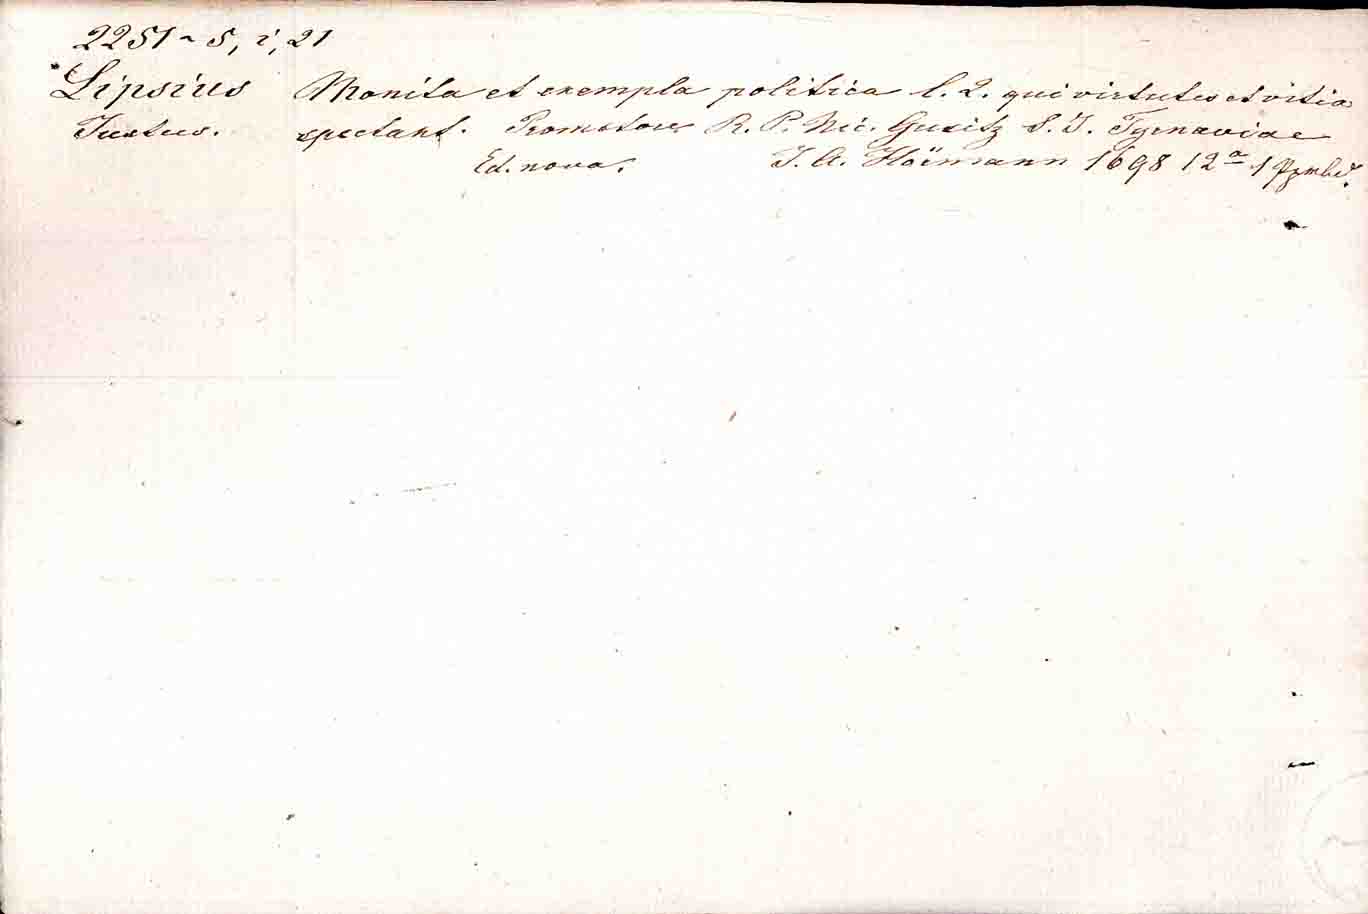 2251 ~ 5, i, 21
Lipsius Monita et exempla politica l. 2. qui virtutes et vitia
Justus. spectant. Promotore R. P. Nic. Gusitz S. J. Tyrnaviae
Ed. nova. J. A. Höimann 1698 12a 1